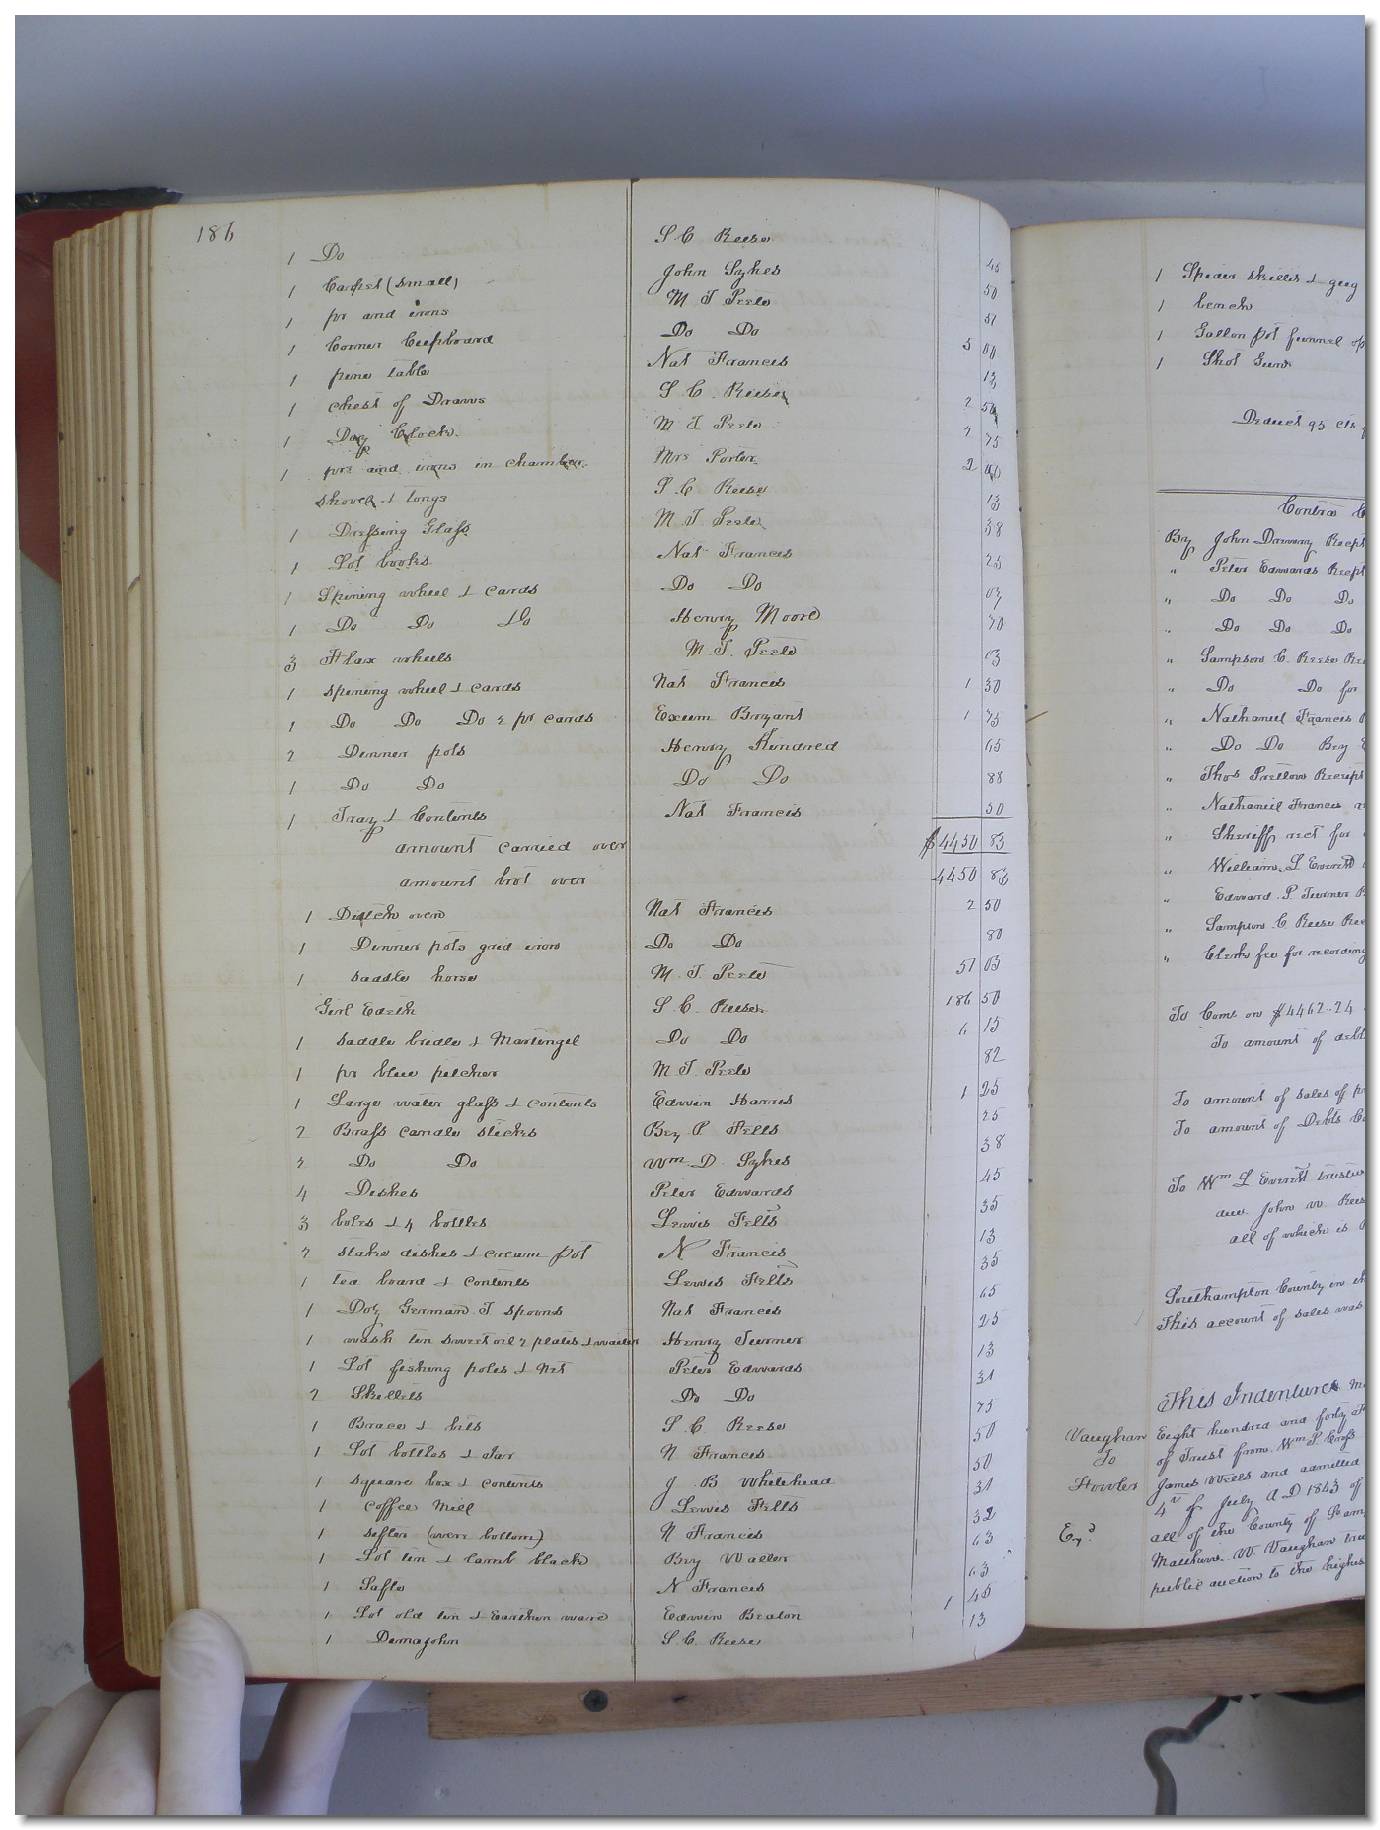 186
1 Do S C Reese 45
1 Carpet (small) John Sykes 50
1 pr and irons M T Peele 51
1 Corner Cupboard Do Do 5 00
1 pine table Nat Francis 13
1 chest of Draws S C Reese 2 50
1 Day Clock M T Peele 2 75
1 prs and irons in chamber Mrs Porter 2 00
shovel & tongs S C Reese 13
1 Dressing Glass M T Peele 38
1 Lot books Nat Francis 25
1 Spining wheel & cards Do Do
1 Do Do Do Henry Moore 70
3 Flax wheels M T Peele 63
1 spining wheel & cards Nat Francis 1 30
1 Do Do Do 2 pr cards Exum Bryant 1 75
2 Dinner pots Henry Kindred 65
1 Do Do Do Do 88
1 Tray & Contents Nat Francis 50
amount carried over $4450 83
amount brot over 4450 83
1 Dutch oven Nat Francis 2 50
1 Dinner pots grid iron Do Do 80
1 saddle horse M. T. Peele 51 03
Girl Edith S. C. Reese 186 50
1 saddle bridle & Martingal Do Do 6 15
1 pr blue pitcher M. T. Peele 82
1 Large water glass & contents Edwin Harris 1 25
2 Brass candle sticks Bey P. Fells 25
2 Do Do Wm. D. Sykes 38
4 Dishes Peter Edwards 45
3 boles & 4 bottles Lewis Fells 35
2 stake dishes & cream pot N Francis 13
1 tea board & contents Lewis Fells 35
1 Doz German T spoons Nat Francis 65
1 wash tin sweet oil 2 plates & waiter Henry Turner 25
1 Lot fishing poles & Net Peter Edwards 13
2 Skillets Do Do 31
1 Brace & bits S C Reese 75
1 Lot bottles & Jar N Francis 50
1 square box & contents J B Whitehead 50
1 coffee Mill Lewis Fells 31
1 sifter (wire bottom) N Francis 32
1 Lot tin & lamb black Bey Waller 63
1 Safe N Francis 63
1 Lot old tin & Earthen ware Edwin Beaton 1 45
1 Demajohn S. C. Reese 13
1 Spider skillet &
1 bench
1 Gallon pot funnel
1 Shot Gun
Deduct 95 cts
Contra
By John Drewry Recpt
" Peter Edwards Recpt
" Do Do Do
" Do Do Do
" Sampson C. Reese
" Do Do for
" Nathaniel Francis
" Do Do Bey
" Thos Pretlow Receipt
" Nathaniel Francis
" Sheriff rect for
" William. L Everett
" Edward. P. Turner
" Sampson. C Reese
" Clerks fee for recording
To Coms on $4462.24
To amount of debt
To amount of sales of
To amount of Debts
To Wm L Everett trustee
due John W. Reese
all of which is
Southampton County in
This account of sales was
This Indenture
Vaughan Eight hundred and forty
To of Trust from Wm S. Cross
Fowler James Wells and admitted
4th of July A D 1843 of
Exd all of the County of
W. Vaughan
public auction to the highest